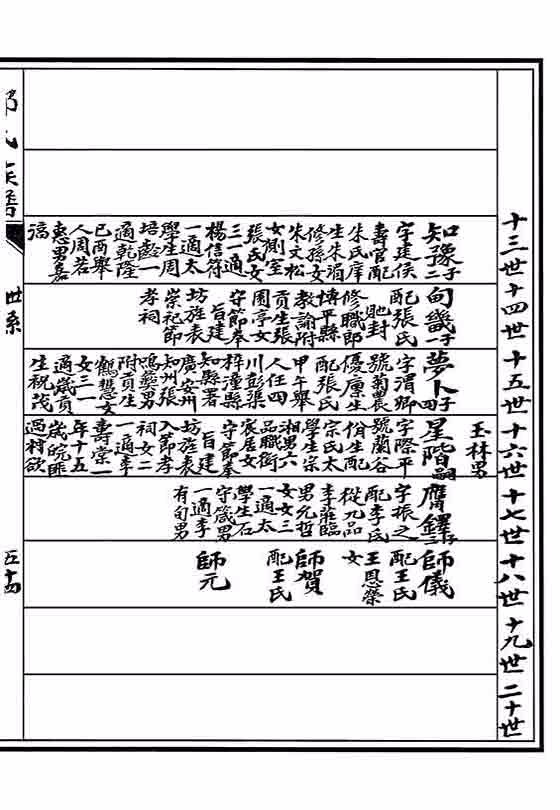 十三世
知豫
子二
字建侯
壽官配
朱氏庠
生朱滔
修孫女
朱文松
女側室
張氏女
三一適
楊信符
一適太
學生周
培齡一
適乾隆
己酉舉
人周若
惠男嘉
禧
十四世
甸畿
子一
配張氏
貤封
修職郎
博平縣
教諭附
貢生張
園亭女
守節奉
旨建
坊旌表
崇祀節
孝祠
十五世
夢卜
子四
字渭卿
號菊農
優廩生
配張氏
甲午舉
人任四
川彭渠
梓潼縣
知縣署
廣安州
知州張
鳴鸞男
附貢生
鶴慧女
女三一
適歲貢
生祝茂
十六世
玉林男
星階
嗣子
字際平
號蘭谷
佾生配
宗氏太
學生宗
湘男六
品職銜
宸居女
守節奉
旨建
坊旌表
入節孝
祠女二
一適李
壽棠一
年十五
歲皖匪
過村歿
十七世
膺鐸
子三
字振之
配李氏
從九品
李莊臨
男元哲
女女三
一適太
學生石
守箴男
一適李
有旬男
十八世
師儀
配王氏
王恩榮
女
師賀
配王氏
師元
十九世
二十世
世系
五十四